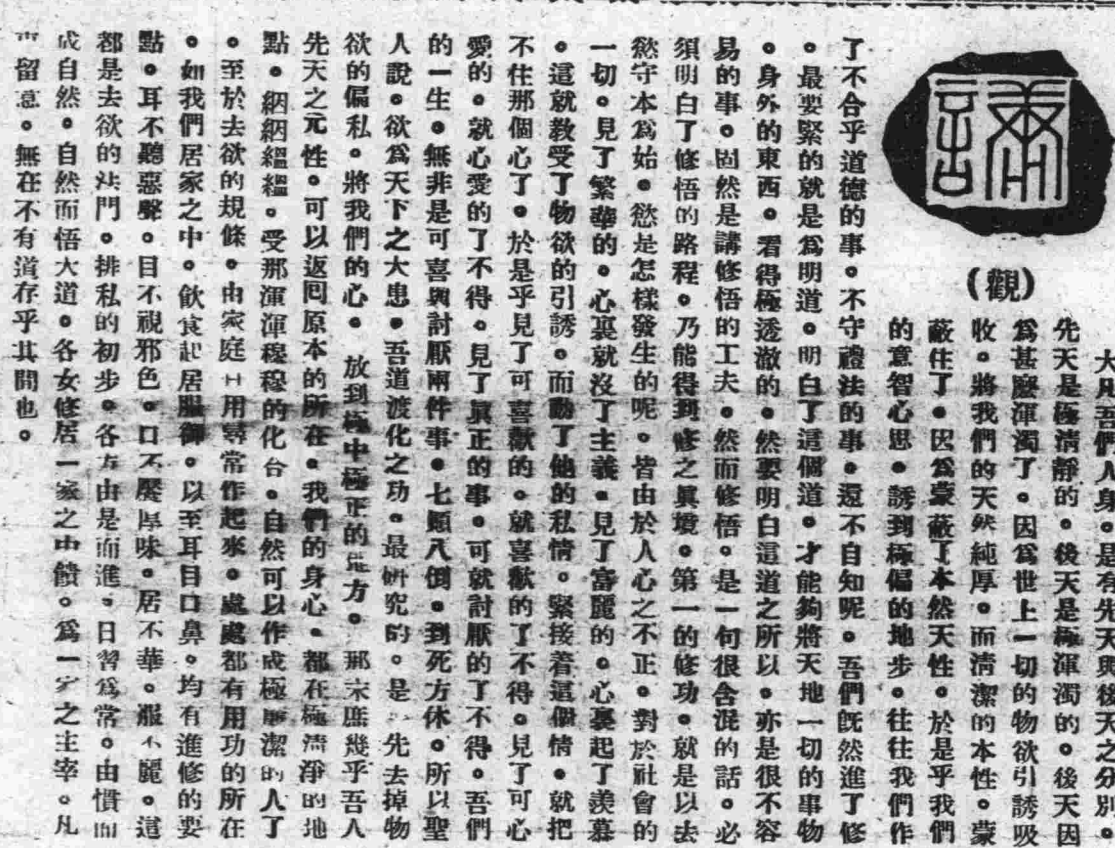 (觀)
大凡吾們人身。是有先天與後天之分別。
先天是極清靜的。後天是極渾濁的。後天因
爲甚麼渾濁了。因爲世上一切的物欲引誘吸
收。將我們的天然純厚。而清潔的本性。蒙
蔽住了。因爲蒙蔽了本然天性。於是乎我們
的意智心思。誘到極偏的地步。往往我們作
了不合乎道德的事。不守禮法的事。還不自知呢。吾們旣然進了修
。最要緊的就是爲明道。明白了這個道。才能夠將天地一切的事物
。身外的東西。看得極透澈的。然要明白這道之所以。亦是很不容
易的事。固然是講修悟的工夫。然而修悟。是一句很含混的話。必
須明白了修悟的路程。乃能得到修之眞境。第一的修功。就是以去
慾守本爲始。慾是怎樣發生的呢。皆由於人心之不正。對於社會的
一切。見了繁華的。心裏就沒了主義。見了富麗的。心裏起了羨慕
。這就教受了物欲的引誘。而動了他的私情。緊接着這個情。就把
不住那個心了。於是乎見了可喜歡的。就喜歡的了不得。見了可心
愛的。就心愛的了不得。見了眞正的事。可就討厭的了不得。吾們
的一生。無非是可喜與討厭兩件事。七顚八倒。到死方休。所以聖
人說。欲爲天下之大患。吾道渡化之功。最硏究的。是 先去掉物
欲的偏私。將我們的心。放到極中極正的地方。那末庶幾乎吾人
先天之元性。可以返囘原本的所在。我們的身心。都在極淸淨的地
點。絪絪縕縕。受那渾渾穆穆的化台。自然可以作成極廉潔的人了
。至於去欲的規條。由家庭日用尋常作起來。處處都有用功的所在
。如我們居家之中。飲食起居服御。以至耳目口鼻。均有進修的要
點。耳不聽惡聲。目不視邪色。口不饜厚味。居不華。服不麗。這
都是去欲的法門。排私的初步。各方由是而進。日習爲常。由慣而
成自然。自然而悟大道。各女修居一家之中饋。爲一家之主宰。凡
事留意。無在不有道存乎其間也。